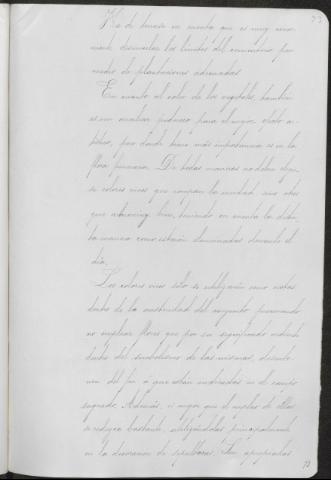 33
Ha de tenerse en cuenta que es muy
mente disimular los límites del cementerio por
medio de plantaciones adecuadas.
En cuanto al color de los vegetales, también
es un auxiliar poderoso para el mejor efecto
pero donde tiene más importancia es en la
flora funeraria. De todas maneras no deben
se colores vivos que rompan la unidad, sino
que armonicen bien, teniendo en cuenta la
la manera como estarán iluminados durante el
día.
Los colores vivos sólo se utilizarán como notas
dentro de la austeridad del conjunto, procurando
no emplear flores que por su significado
dentro del simbolismo de las mismas,
del fin á que están en el campo
sagrado. Además, es mejor que el empleo de ellas
se reduzca bastante, utilizándolas principalmente
en la decoración de sepulturas. Son apropiadas